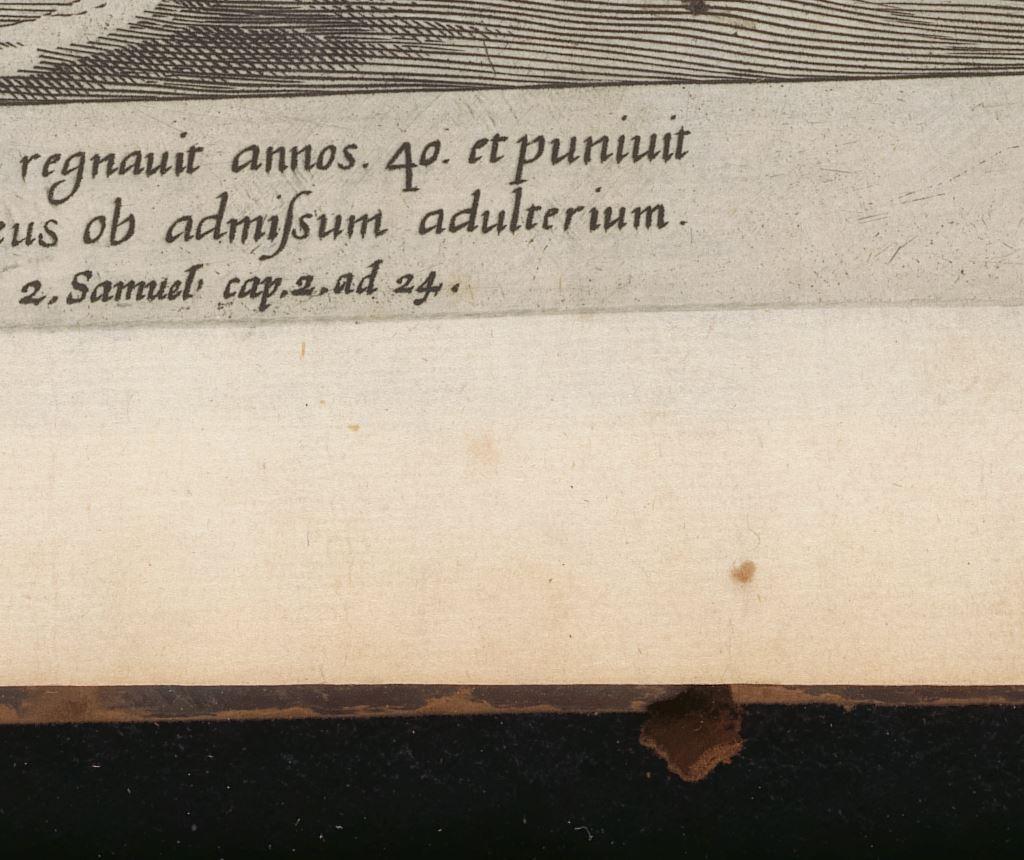 regnauit annos. 40. et puniuit
eus ob admiſsum adulterium.
2. Samuel cap. 2. ad 24.